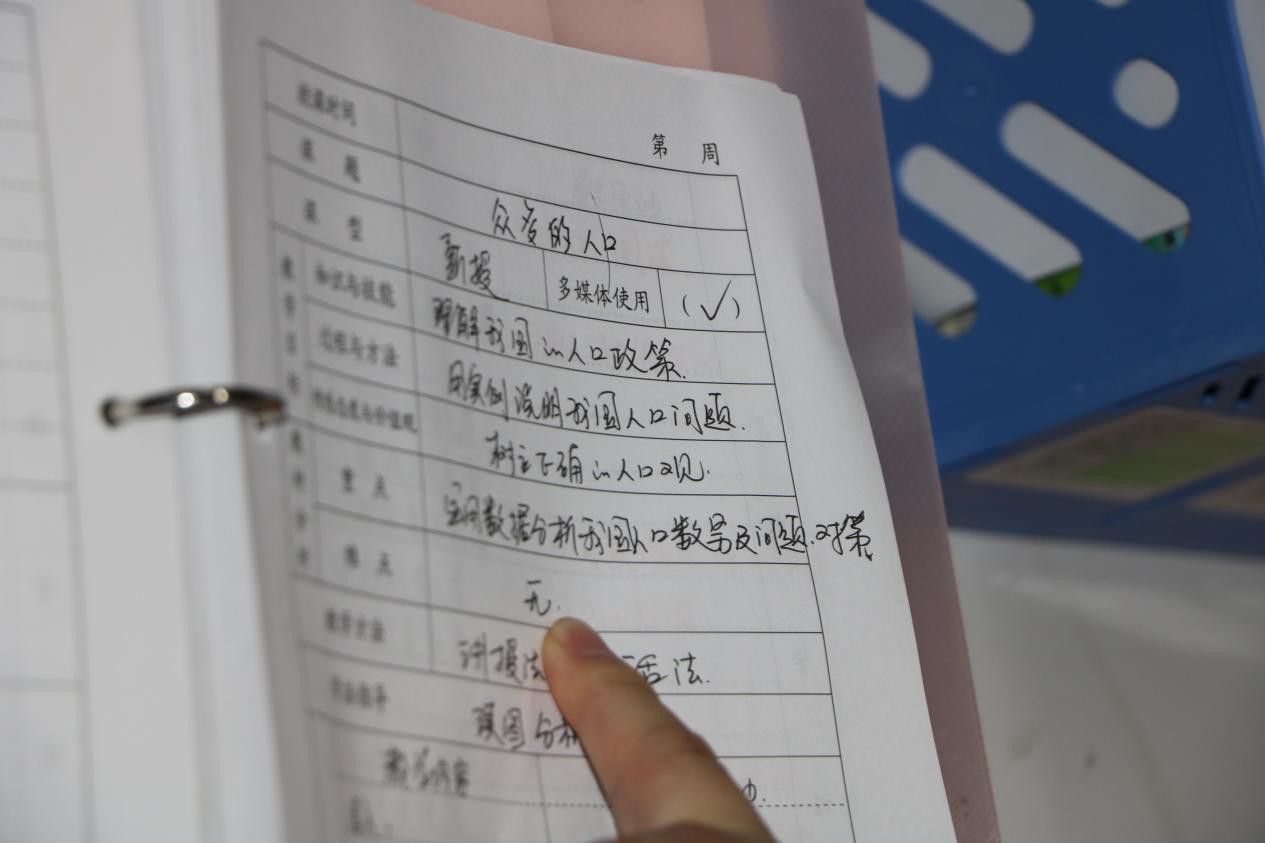 授课时间 第 周
课题 众多的人口
课型 新授 多媒体使用 (√)
知识与技能 理解我国的人口政策.
过程与方法 用实例说明我国人口问题.
情感态度与价值观 树立正确的人口观.
重点 运用数据分析我国人口数量及问题.对策
难点 无.
教学方法 讲授法 活法.
学法指导 读图分析
教学内容